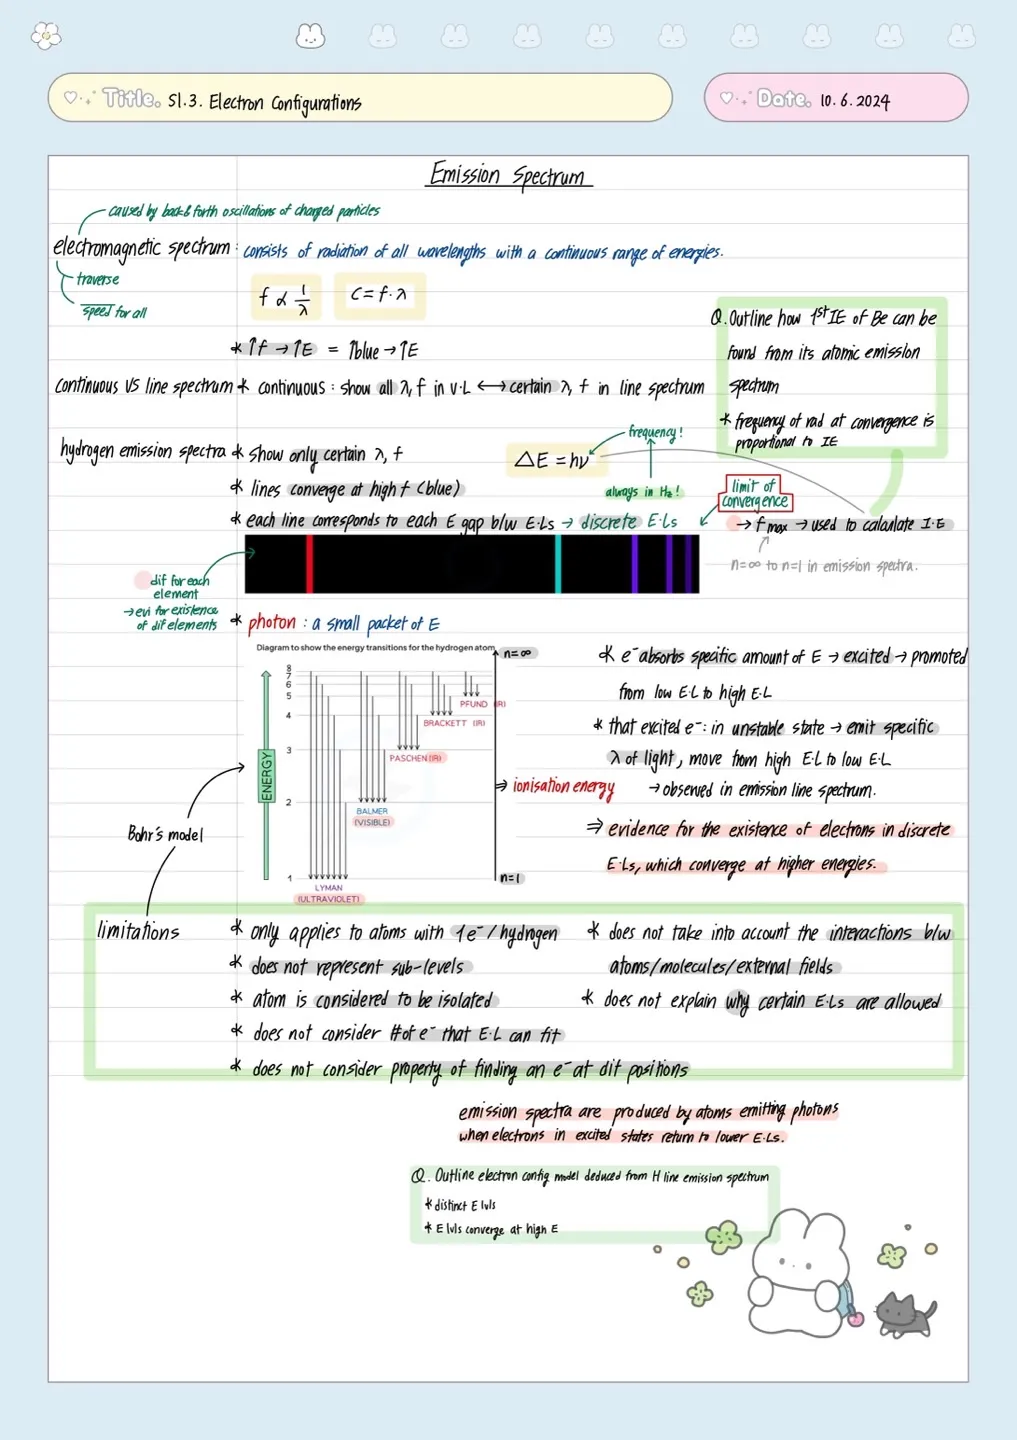 Title. S1.3. Electron Configurations
Date. 10.6.2024
Emission Spectrum
caused by back & forth oscillations of charged particles
electromagnetic spectrum : consists of radiation of all wavelengths with a continuous range of energies.
traverse
speed for all
f ∝ 1/λ
C = f·λ
* ↑f → ↑E = ↑blue → ↑E
Q. Outline how 1st IE of Be can be
found from its atomic emission
spectrum
* frequency of rad at convergence is
proportional to IE
continuous VS line spectrum * continuous : show all λ, f in v·L ⟷ certain λ, f in line spectrum
hydrogen emission spectra * show only certain λ, f
ΔE = hν
frequency!
always in Hz!
* lines converge at high f (blue)
* each line corresponds to each E gap b/w E·Ls → discrete E·Ls
limit of
convergence
→ f max → used to calculate I·E
n=∞ to n=1 in emission spectra.
dif for each
element
→ evi for existence
of dif elements
* photon : a small packet of E
Diagram to show the energy transitions for the hydrogen atom
n=∞
8
7
6
5
4
3
2
1
ENERGY
PFUND (IR)
BRACKETT (IR)
PASCHEN (IR)
BALMER
(VISIBLE)
LYMAN
(ULTRAVIOLET)
n=1
⇒ ionisation energy
Bohr's model
* e⁻ absorbs specific amount of E → excited → promoted
from low E·L to high E·L
* that excited e⁻: in unstable state → emit specific
λ of light, move from high E·L to low E·L
→ observed in emission line spectrum.
⇒ evidence for the existence of electrons in discrete
E·Ls, which converge at higher energies.
limitations
* only applies to atoms with 1e⁻/hydrogen
* does not represent sub-levels
* atom is considered to be isolated
* does not consider # of e⁻ that E·L can fit
* does not consider property of finding an e⁻ at dif positions
* does not take into account the interactions b/w
atoms/molecules/external fields
* does not explain why certain E·Ls are allowed
emission spectra are produced by atoms emitting photons
when electrons in excited states return to lower E·Ls.
Q. Outline electron config model deduced from H line emission spectrum
* distinct E lvls
* E lvls converge at high E